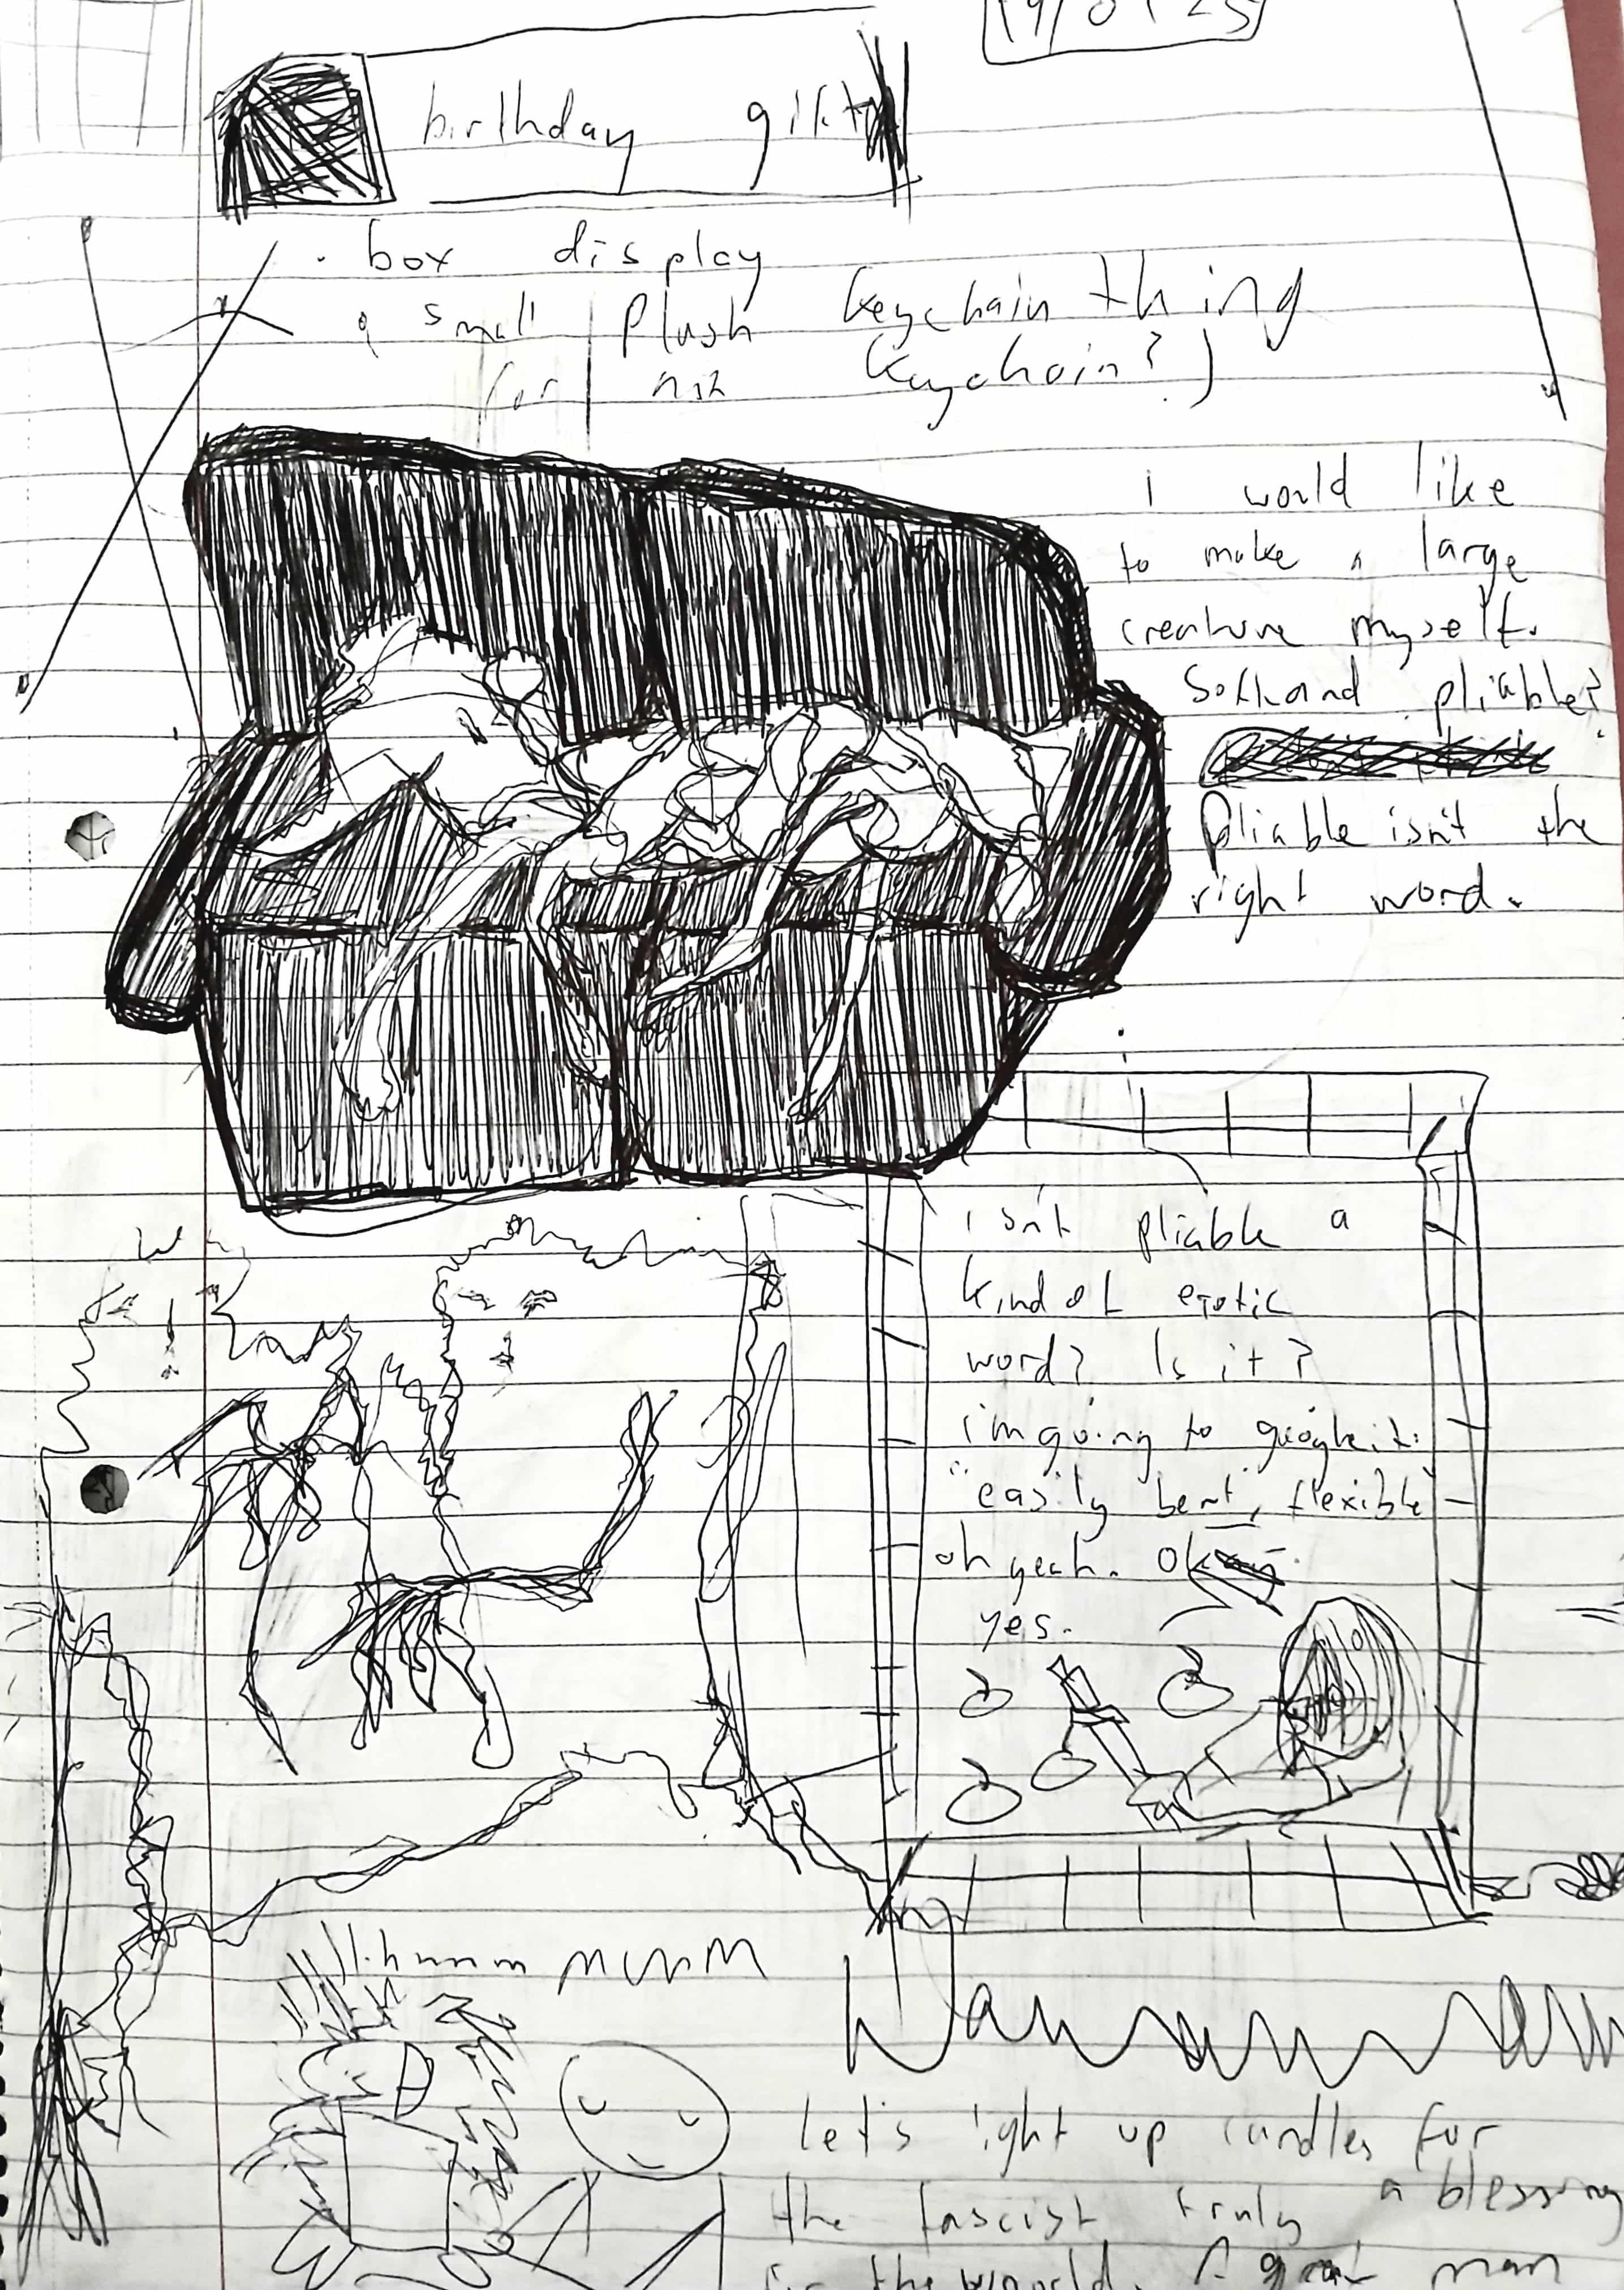 birthday gift
· box display
small plush keychain thing
for keychain?)
i would like
to make a large
creature myself.
Soft and pliable?
Pliable isn't the
right word.
isn't pliable a
kind of erotic
word? Is it?
i'm going to google it:
"easily bent, flexible"
oh yeah. Ok
yes.
Let's light up candles for
the fascist truly a blessing
for the world. A great man